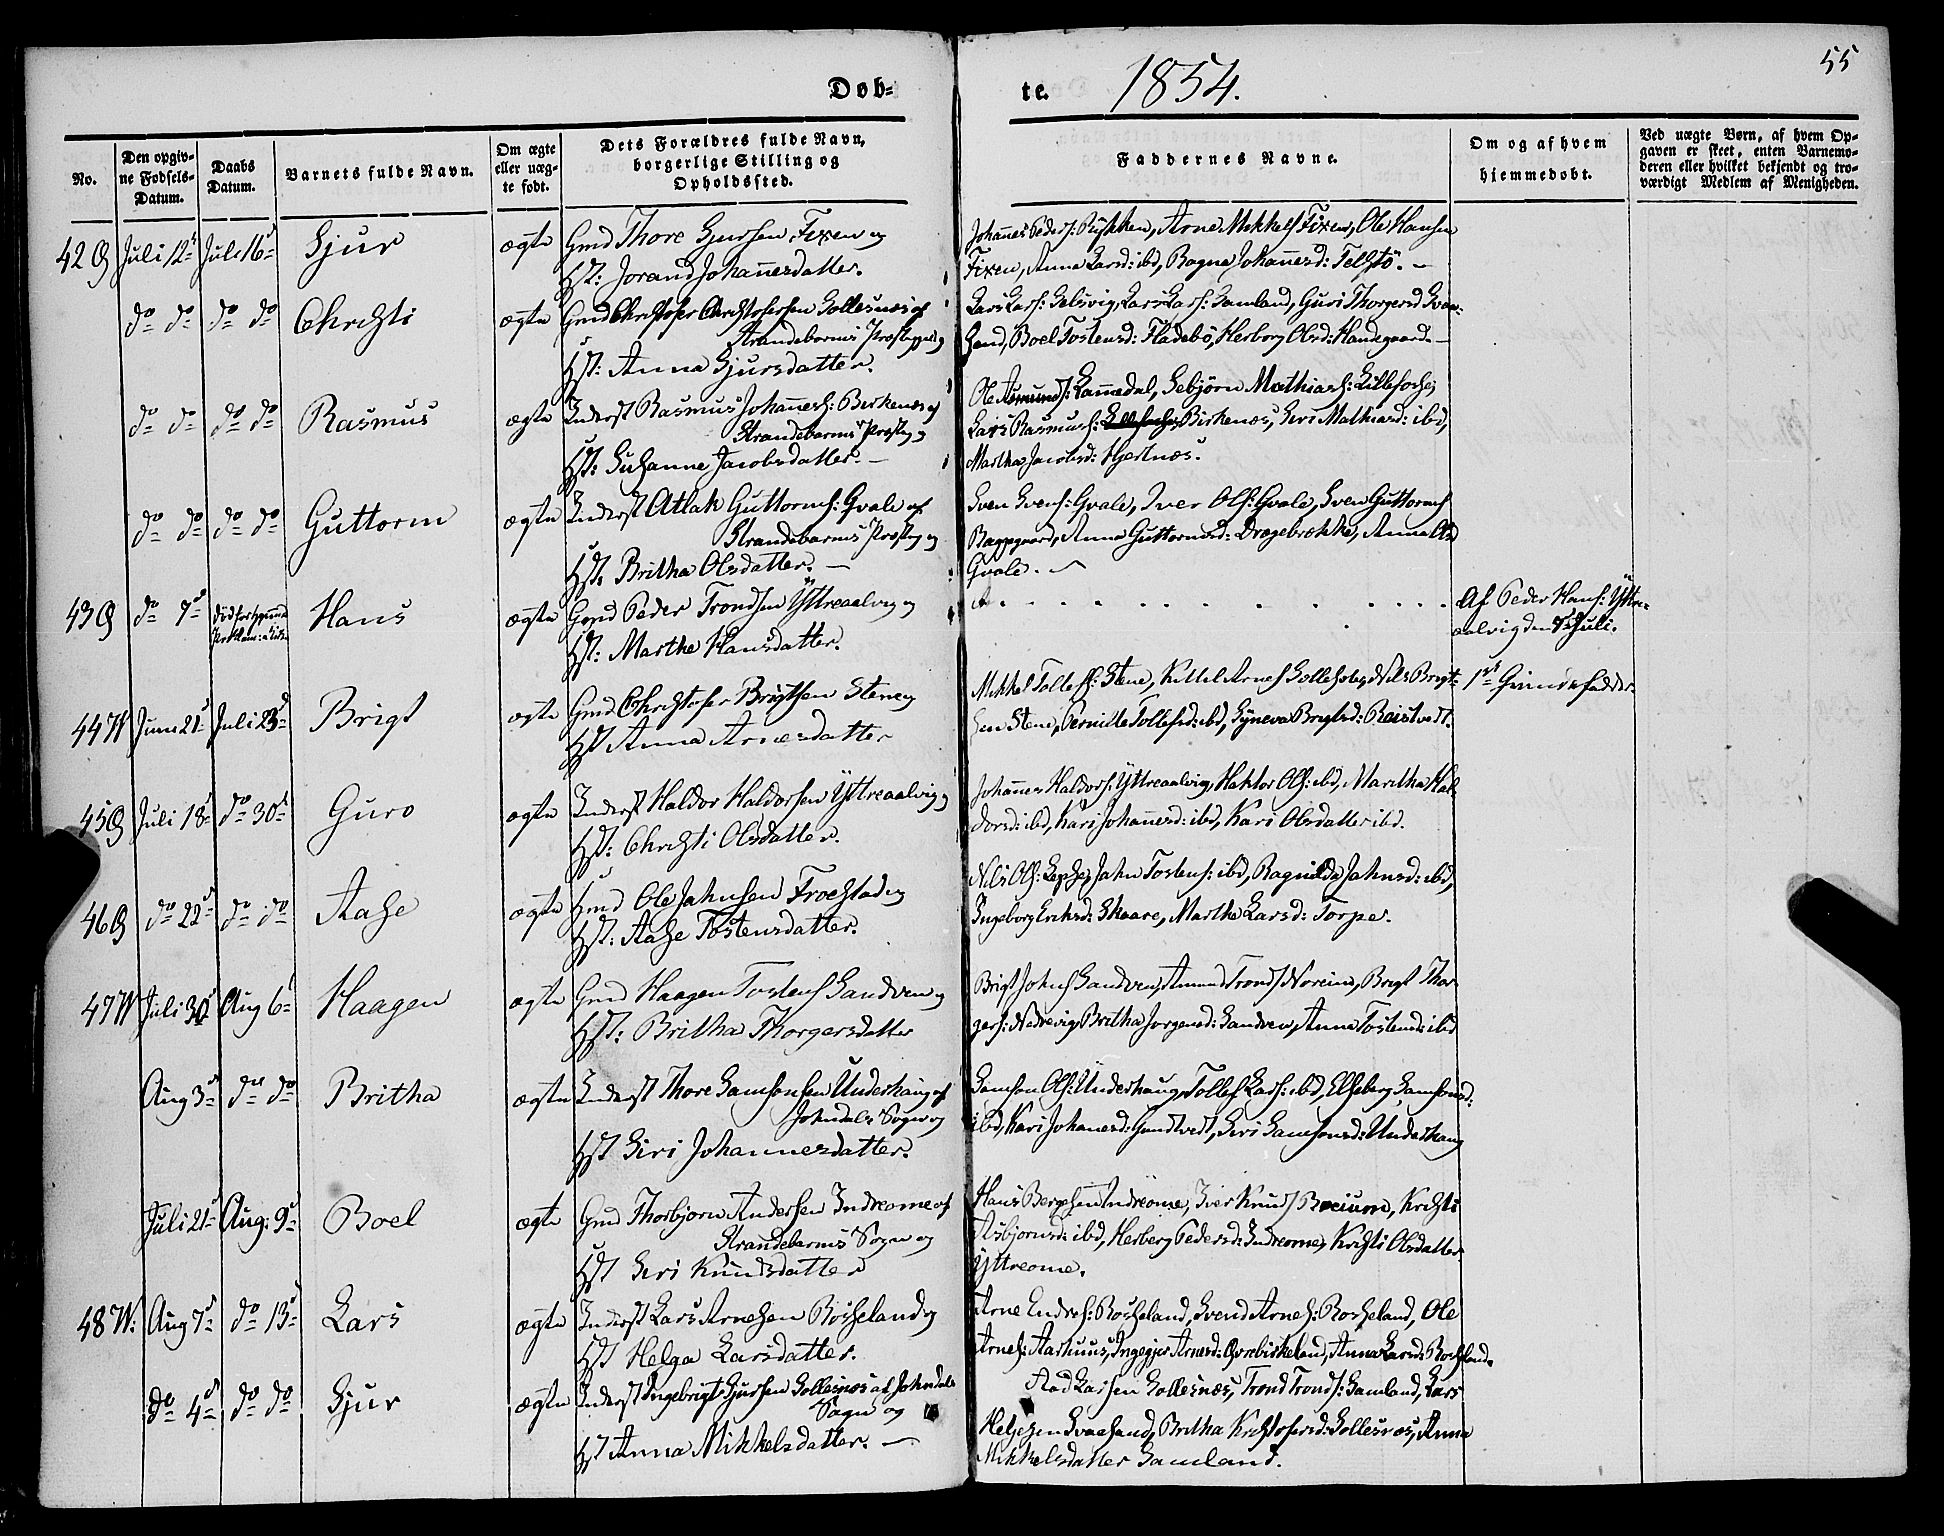 Døb-
te.
1854.
55
No.
Den opgiv-
ne Fødsels-
Datum.
Daabs
Datum.
Barnets fulde Navn.
Om ægte
eller uæg-
te født.
Dets Forældres fulde Navn,
borgerlige Stilling og
Opholdssted.
Faddernes Navne.
Om og af hvem
hjemmedøbt.
Ved uægte Børn, af hvem Op-
gaven er skeet, enten Barnemo-
deren eller hvilket bekjendt og tro-
værdigt Medlem af Menigheden.
42 Juli 12 Juli 16 Sjur ægte Gmd Thore Sjursen Fixen og
Hst: Jorand Johannesdatter.
Johannes Peders: Rykken, Arne Mikkels Fixen, Ole Hansen
Fixen, Anna Larsd: ibd, Ragna Johannesd: Telstø. —
do do do do Christi ægte Gmd Christofer Christofersen Sollesnæs af
Strandebarms Præstegjeld og
Hst: Anna Sjursdatter.
Lars Lars: Lars Lars: Samland, Guri Thorgersd
Boel Tostensd: Fladebø, Herborg Olsd: Handegaard. —
do do do do Rasmus ægte Inderst Rasmus Johannes: Birkenæs af
Strandebarms Præsteg og
Hst: Susanne Jacobsdatter. —
Ole Asmunds: Sebjørn Mathias:
Lars Rasmus: Birkenæs, Siri Mathiasd: ibd,
Martha Jacobsd: Hjertnæs.
do do do do Guttorm ægte Inderst Atlak Guttorms: Qvale af
Strandebarms Præsteg og
Hst. Britha Olsdatter. —
Sven Svens: Qvale, Iver Ols: Qvale, Sven Guttorms
Anna Guttormsd: Drægebrekke, Anna Olsd
Qvale. —
43 do 7 Hans ægte Gmd Peder Trondsen Yttreaalvig og
Hst: Marthe Hansdatter.
Af Peder Hans: Yttre-
aalvig den Juli.
44 Juni 21 Juli 23 Brigt ægte Gmd Christofer Brigtsen Stene og
Hst Anna Arnesdatter
Mikkel Tollefs: Stene, Kittel Arnes Nils Brigt-
sen Stene, Pernille Tollefsd: ibd, Synneva Brigtsd: Reistvedt.
45 Juli 18 do 30 Guro ægte Inderst Haldor Haldorsen Yttreaalvig og
Hst: Christi Olsdatter.
Johannes Haldors: Yttreaalvig, Haktor Ols: ibd, Maritha Hal-
dorsd: ibd, Kari Johannesd: ibd, Kari Olsdatter ibd.
46 do 22 do do Aase ægte Gmd Ole Johnsen Froestad og
Hst: Aase Tostensdatter.
Nils Ols: Lepsø, John Tostens: ibd, Ragnilda Johnsd: ibd,
Ingeborg Eriksd: Skaare, Marthe Larsd: Torpe.
47 Juli 30 Aug 6 Haagen ægte Gmd Haagen Tostens Sandven og
Hst: Britha Thorgersdatter
Brigt Johns Sandven, Amund Tronds Noreim, Brigt Thor-
gers: Nedrevig, Britha Jorgensd: Sandven, Anna Tostensd: ibd
Aug 3 do do Britha ægte Inderst Thore Samsonsen Underhaug af
Johndals Sogn og
Hst Siri Johannesdatter.
Samson Ols: Underhaug, Tollef Lars: ibd, Elseberg Samsonsd:
ibd, Kari Johanesd: Siri Samsonsd: Underhaug
Juli 21 Aug: 9 Boel ægte Gmd Thorbjørn Andersen Indreome af
Strandebarms Sogn og
Hst Siri Knudsdatter
Hans Indreome, Iver Knuds Kristi
ibd, Herborg Pedersd: Indreome, Kristi Olsdatter
Yttreome.
48 Aug 7 do 13 Lars ægte Inderst Lars Arnesen Rosseland og
Hst Helga Larsdatter.
Arne Endres: Rosseland, Svend Arnes: Rosseland, Ole
Arnes: Aarhuus, Arnesd: Øvrebirkeland, Anna Larsd: Rosseland.
do 4 do do Sjur ægte Inderst Ingebrigt Sjursen Sollesnæs af Johndals
Sogn og
Hst Anna Mikkelsdatter. —
Aad Larsen Sollesnæs, Trond Tronds: Samland, Lars
Helgesen Britha Kristofersd: Sollesnæs, Anna
Mikkelsdatter Samland.